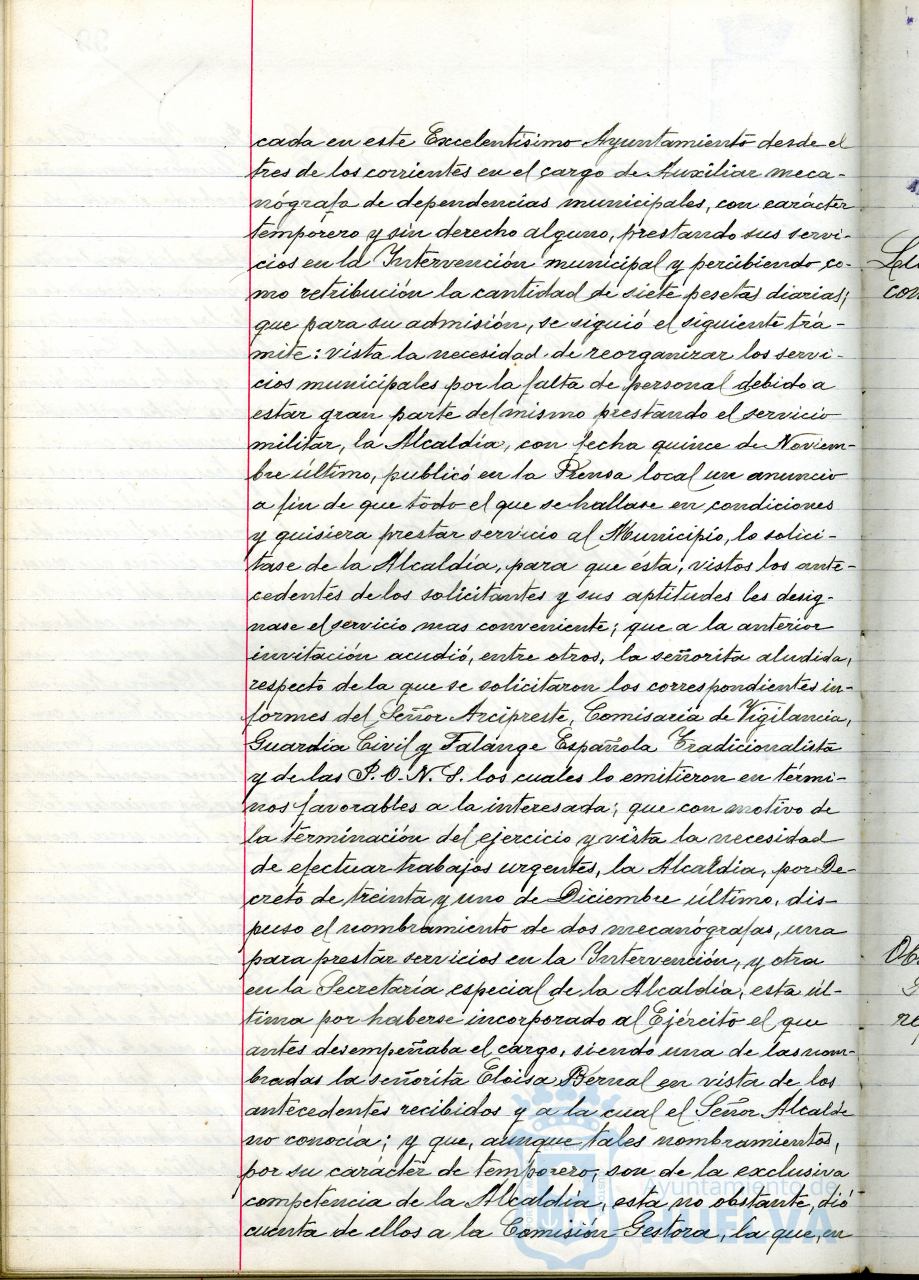 cada en este Excelentísimo Ayuntamiento desde el
tres de los corrientes en el cargo de Auxiliar meca-
nógrafa de dependencias municipales, con carácter
temporero y sin derecho alguno, prestando sus servi-
cios en la Intervención municipal y percibiendo co-
mo retribución la cantidad de siete pesetas diarias;
que para su admisión, se siguió el siguiente trá-
mite: vista la necesidad de reorganizar los servi-
cios municipales por la falta de personal debido a
estar gran parte del mismo prestando el servicio
militar, la Alcaldía, con fecha quince de Noviem-
bre último, publicó en la Prensa local un anuncio
a fin de que todo el que se hallase en condiciones
y quisiera prestar servicio al Municipio, lo solici-
tase de la Alcaldía, para que ésta, vistos los ante-
cedentes de los solicitantes y sus aptitudes les desig-
nase el servicio mas conveniente; que a la anterior
invitación acudió, entre otros, la señorita aludida,
respecto de la que se solicitaron los correspondientes in-
formes del Señor Arcipreste, Comisaría de Vigilancia,
Guardia Civil y Falange Española Tradicionalista
y de las J.O.N.S. los cuales lo emitieron en térmi-
nos favorables a la interesada; que con motivo de
la terminación del ejercicio y vista la necesidad
de efectuar trabajos urgentes, la Alcaldía, por De-
creto de treinta y uno de Diciembre último, dis-
puso el nombramiento de dos mecanógrafas, una
para prestar servicios en la Intervención, y otra
en la Secretaría especial de la Alcaldía, esta úl-
tima por haberse incorporado al Ejército el que
antes desempeñaba el cargo, siendo una de las nom-
bradas la señorita Eloisa Bernal en vista de los
antecedentes recibidos y a la cual el Señor Alcalde
no conocía; y que, aunque tales nombramientos,
por su carácter de temporero, son de la exclusiva
competencia de la Alcaldía, esta no obstante, dió
cuenta de ellos a la Comisión Gestora, la que, en
Ayuntamiento de
HUELVA